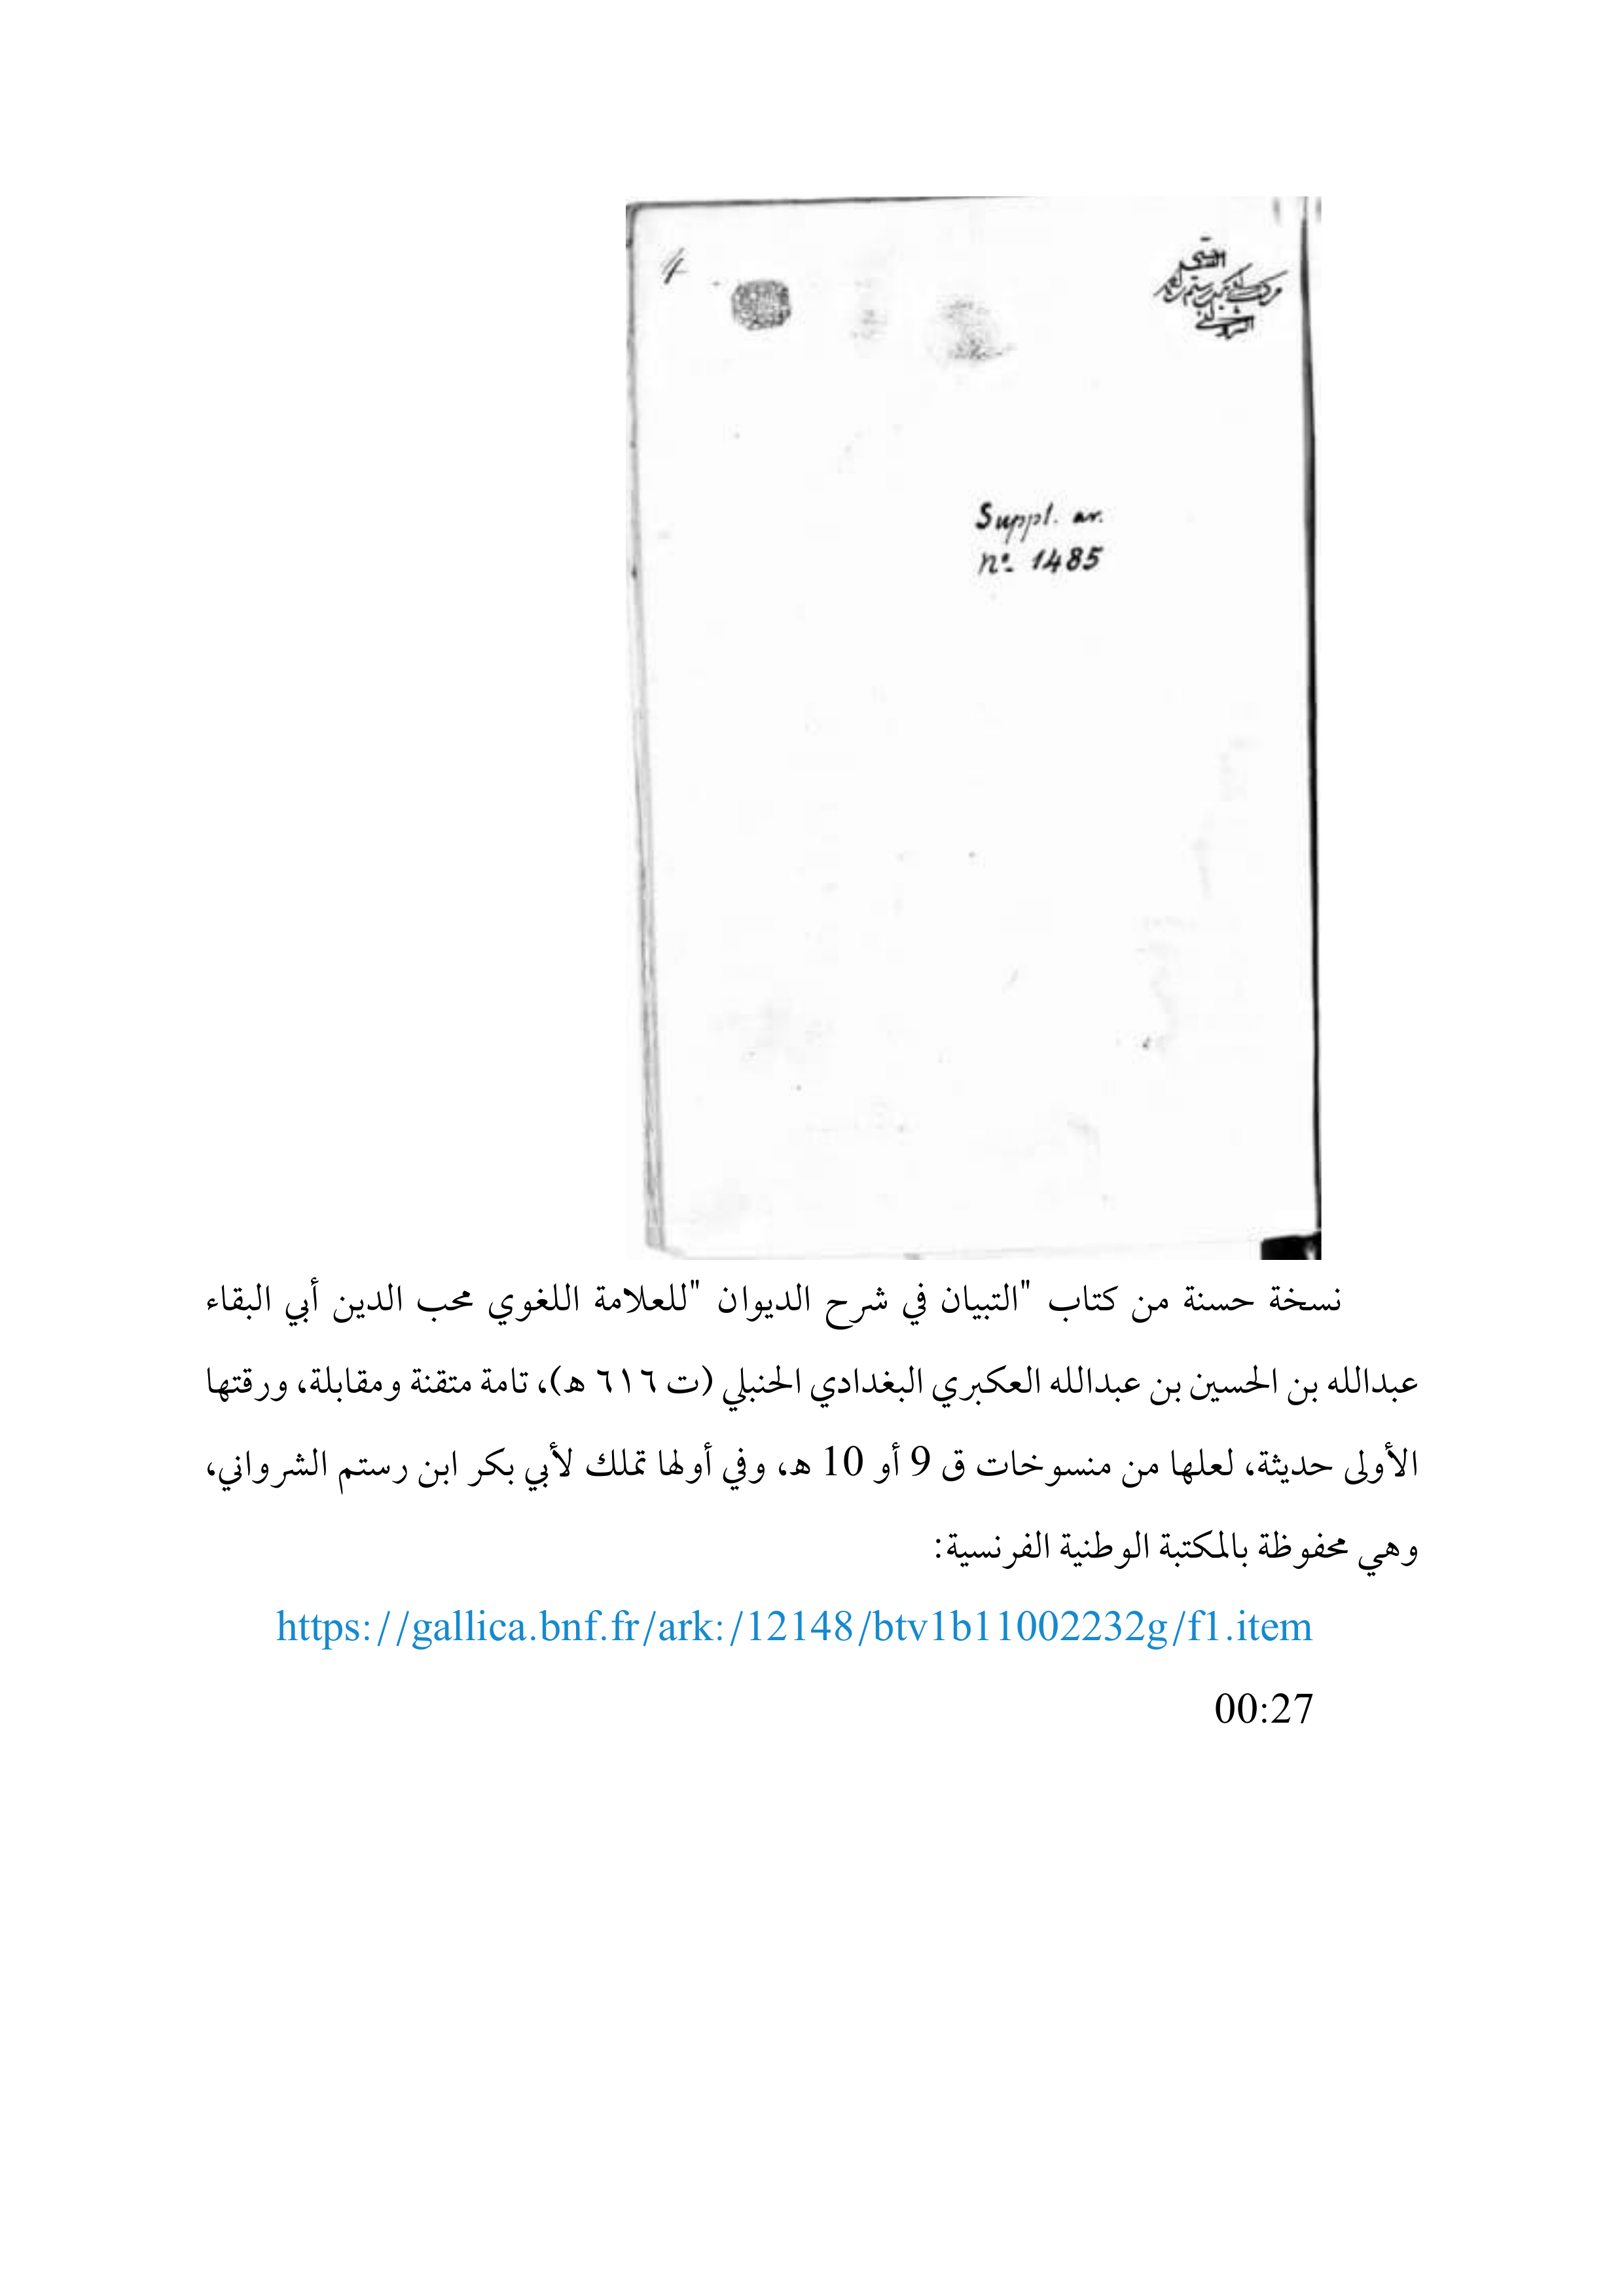 4
من كتب أبي بكر بن رستم بن أحمد
الشرواني
Suppl. ar.
nº. 1485
نسخة حسنة من كتاب "التبيان في شرح الديوان "للعلامة اللغوي محب الدين أبي البقاء
عبدالله بن الحسين بن عبدالله العكبري البغدادي الحنبلي (ت ٦١٦ هـ)، تامة متقنة ومقابلة، ورقتها
الأولى حديثة، لعلها من منسوخات ق 9 أو 10 هـ، وفي أولها تملك لأبي بكر ابن رستم الشرواني،
وهي محفوظة بالمكتبة الوطنية الفرنسية:
https://gallica.bnf.fr/ark:/12148/btv1b11002232g/f1.item
00:27